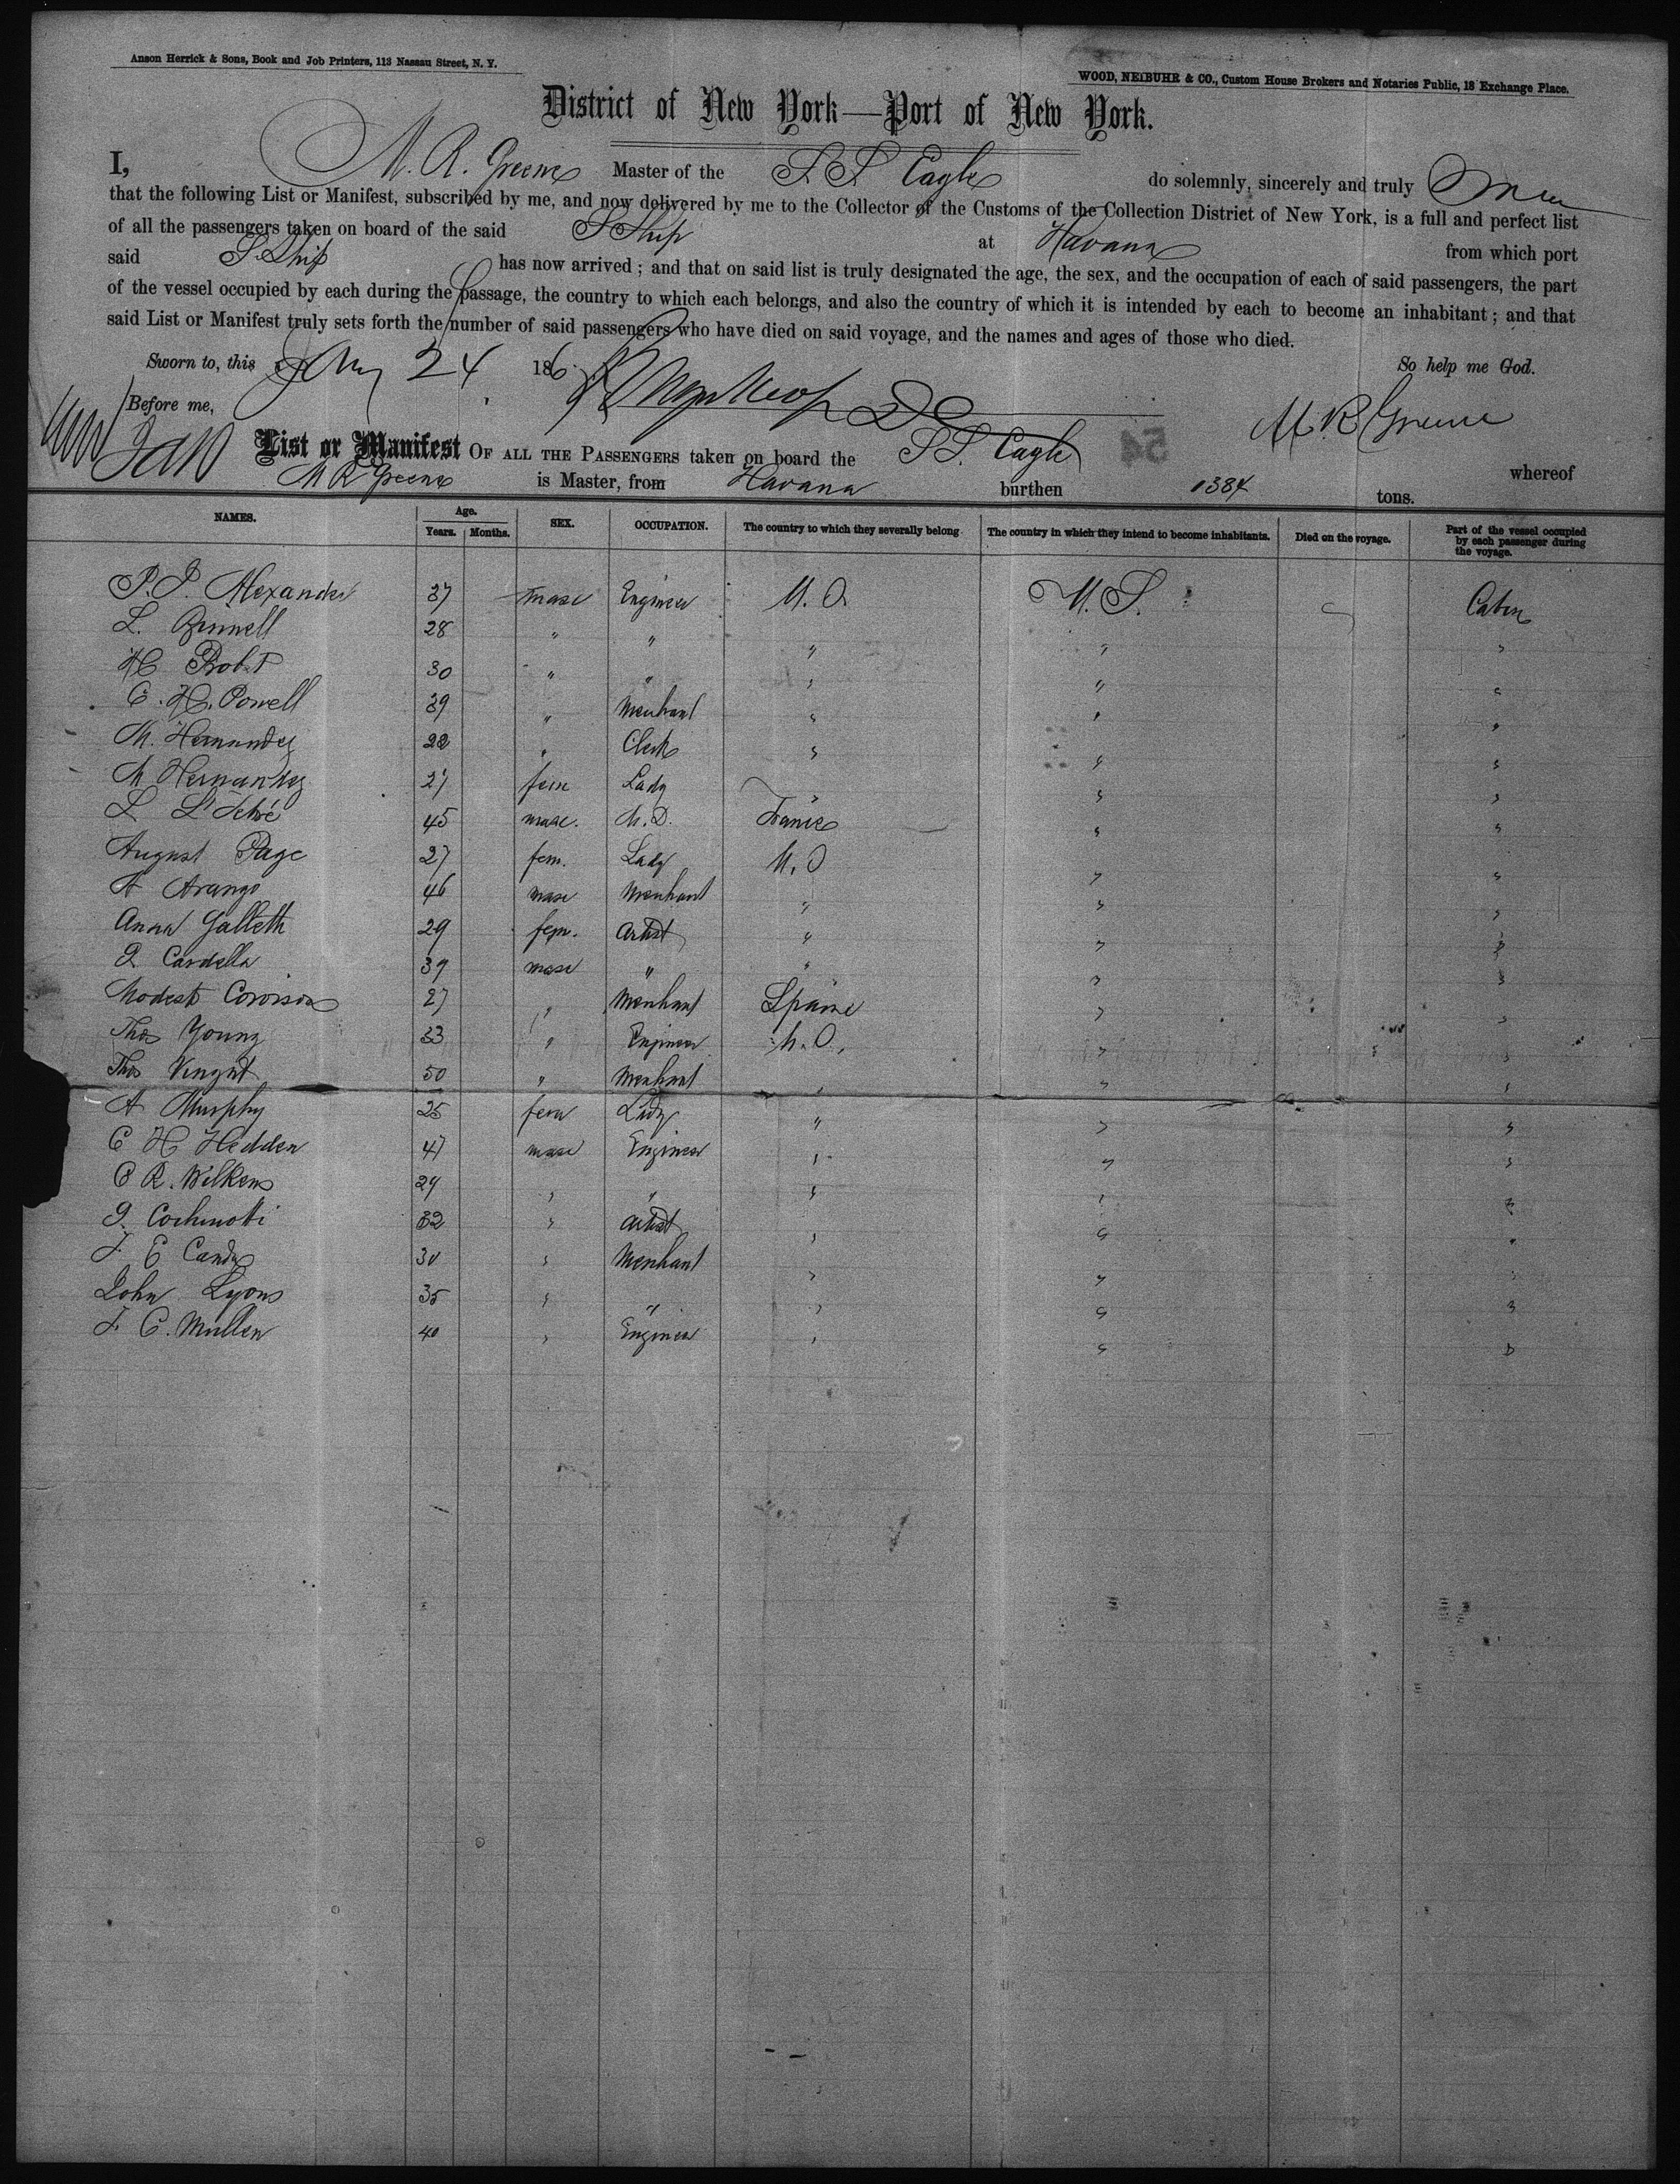 Anson Herrick & Sons, Book and Job Printers, 113 Nassau Street, N. Y.
WOOD, NEIBUHR & CO., Custom House Brokers and Notaries Public, 18 Exchange Place.
District of New York—Port of New York.
I, M. R. Greene Master of the S. S. Eagle do solemnly, sincerely and truly
that the following List or Manifest, subscribed by me, and now delivered by me to the Collector of the Customs of the Collection District of New York, is a full and perfect list
of all the passengers taken on board of the said S Ship at Havana from which port
said S. Ship has now arrived; and that on said list is truly designated the age, the sex, and the occupation of each of said passengers, the part
of the vessel occupied by each during the passage, the country to which each belongs, and also the country of which it is intended by each to become an inhabitant; and that
said List or Manifest truly sets forth the number of said passengers who have died on said voyage, and the names and ages of those who died.
Sworn to, this 24 186 So help me God.
Before me, M R Greene
List or Manifest OF ALL THE PASSENGERS taken on board the S S. Eagle whereof
M R Greene is Master, from Havana burthen 1384 tons.
NAMES. Age. Years. Months. SEX. OCCUPATION. The country to which they severally belong The country in which they intend to become inhabitants. Died on the voyage. Part of the vessel occupied by each passenger during the voyage.
P. J. Alexander 37 masc Engineer U. S. U. S. Cabin
L. 28 " " " " "
H 30 " " " " "
C. H. Powell 39 " Merchant " " "
M. Hernandez 22 " Clerk " " "
M Hernandez 27 fem Lady " " "
L 45 masc. M. D. France " "
August Page 27 fem. Lady U. S " "
A Arango 46 masc Merchant " " "
Anna Galletti 29 fem. Artist " " "
Cardella 39 masc " " " "
Modesto 27 " Merchant Spain " "
Thos Young 33 " Engineer U. S. " "
Thos 50 " Merchant " " "
A Murphy 25 fem Lady " " "
C H Hedden 47 masc Engineer " " "
C R. Wilkens 29 " " " " "
32 " Artist " " "
J. E 30 " Merchant " " "
John Lyons 35 " " " " "
J. C. Mullen 40 " Engineer " " "